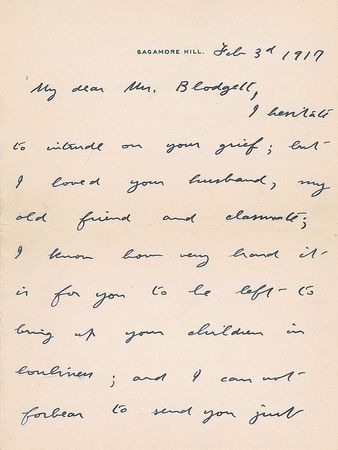 SAGAMORE HILL. Feb 3d 1917
My dear Mrs. Blodgett,
I hesitate
to intrude on your grief; but
I loved your husband, my
old friend and classmate;
I know how very hard it
is for you to be left to
bring up your children in
lonliness; and I can not
forbear to send you just